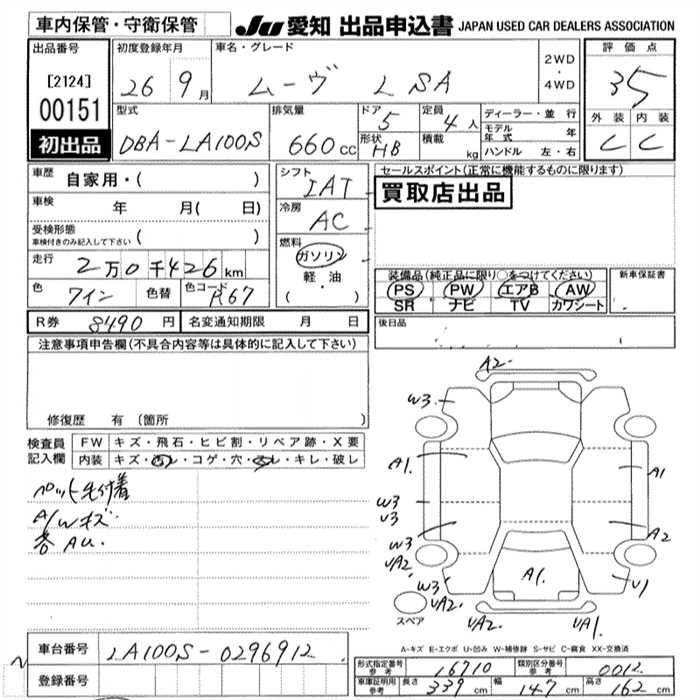 車内保管・守衛保管
JU 愛知 出品申込書 JAPAN USED CAR DEALERS ASSOCIATION
出品番号
[2124]
00151
初出品
初度登録年月
26 9月
車名・グレード
ムーヴ L SA
2WD
・
4WD
評価点
3.5
外装 内装
C C
型式
DBA-LA100S
排気量
660cc
ドア
5
形状
HB
定員
4人
積載
kg
ディーラー・並行
モデル年式 年
ハンドル 左・右
車歴 自家用・( )
車検 年 月( 日)
受検形態
車検付きのみ記入して下さい ( )
走行 2万0千426km
色 ワイン 色替 色コード R67
R券 8490円 名変通知期限 月 日
シフト
IAT
冷房
AC
燃料
ガソリン
軽・油
( )
セールスポイント(正常に機能するものに限ります)
買取店出品
装備品(純正品に限り○をつけてください)
PS PW エアB AW
SR ナビ TV カワシート
新車保証書
後日品
注意事項申告欄(不具合内容等は具体的に記入して下さい)
修復歴 有 (箇所 )
検査員記入欄
FW キズ・飛石・ヒビ割・リペア跡・X要
内装 キズ・汚レ・コゲ・穴・スレ・キレ・破レ
ペット毛付着
A/Wキズ
各AU.
A2.
W3
A1.
A1
W3
U3
W3
UA2
A2
W3
UA2.
A1.
U1
UA2.
UA1.
スペア
A-キズ E-エクボ U-凹み W-補修跡 S-サビ C-腐食 XX-交換済
車台番号 LA100S-0296912
登録番号
形式指定番号参考 16710 類別区分番号参考 0012
車庫証明用参考 長さ 339cm 幅 147cm 高さ 162cm